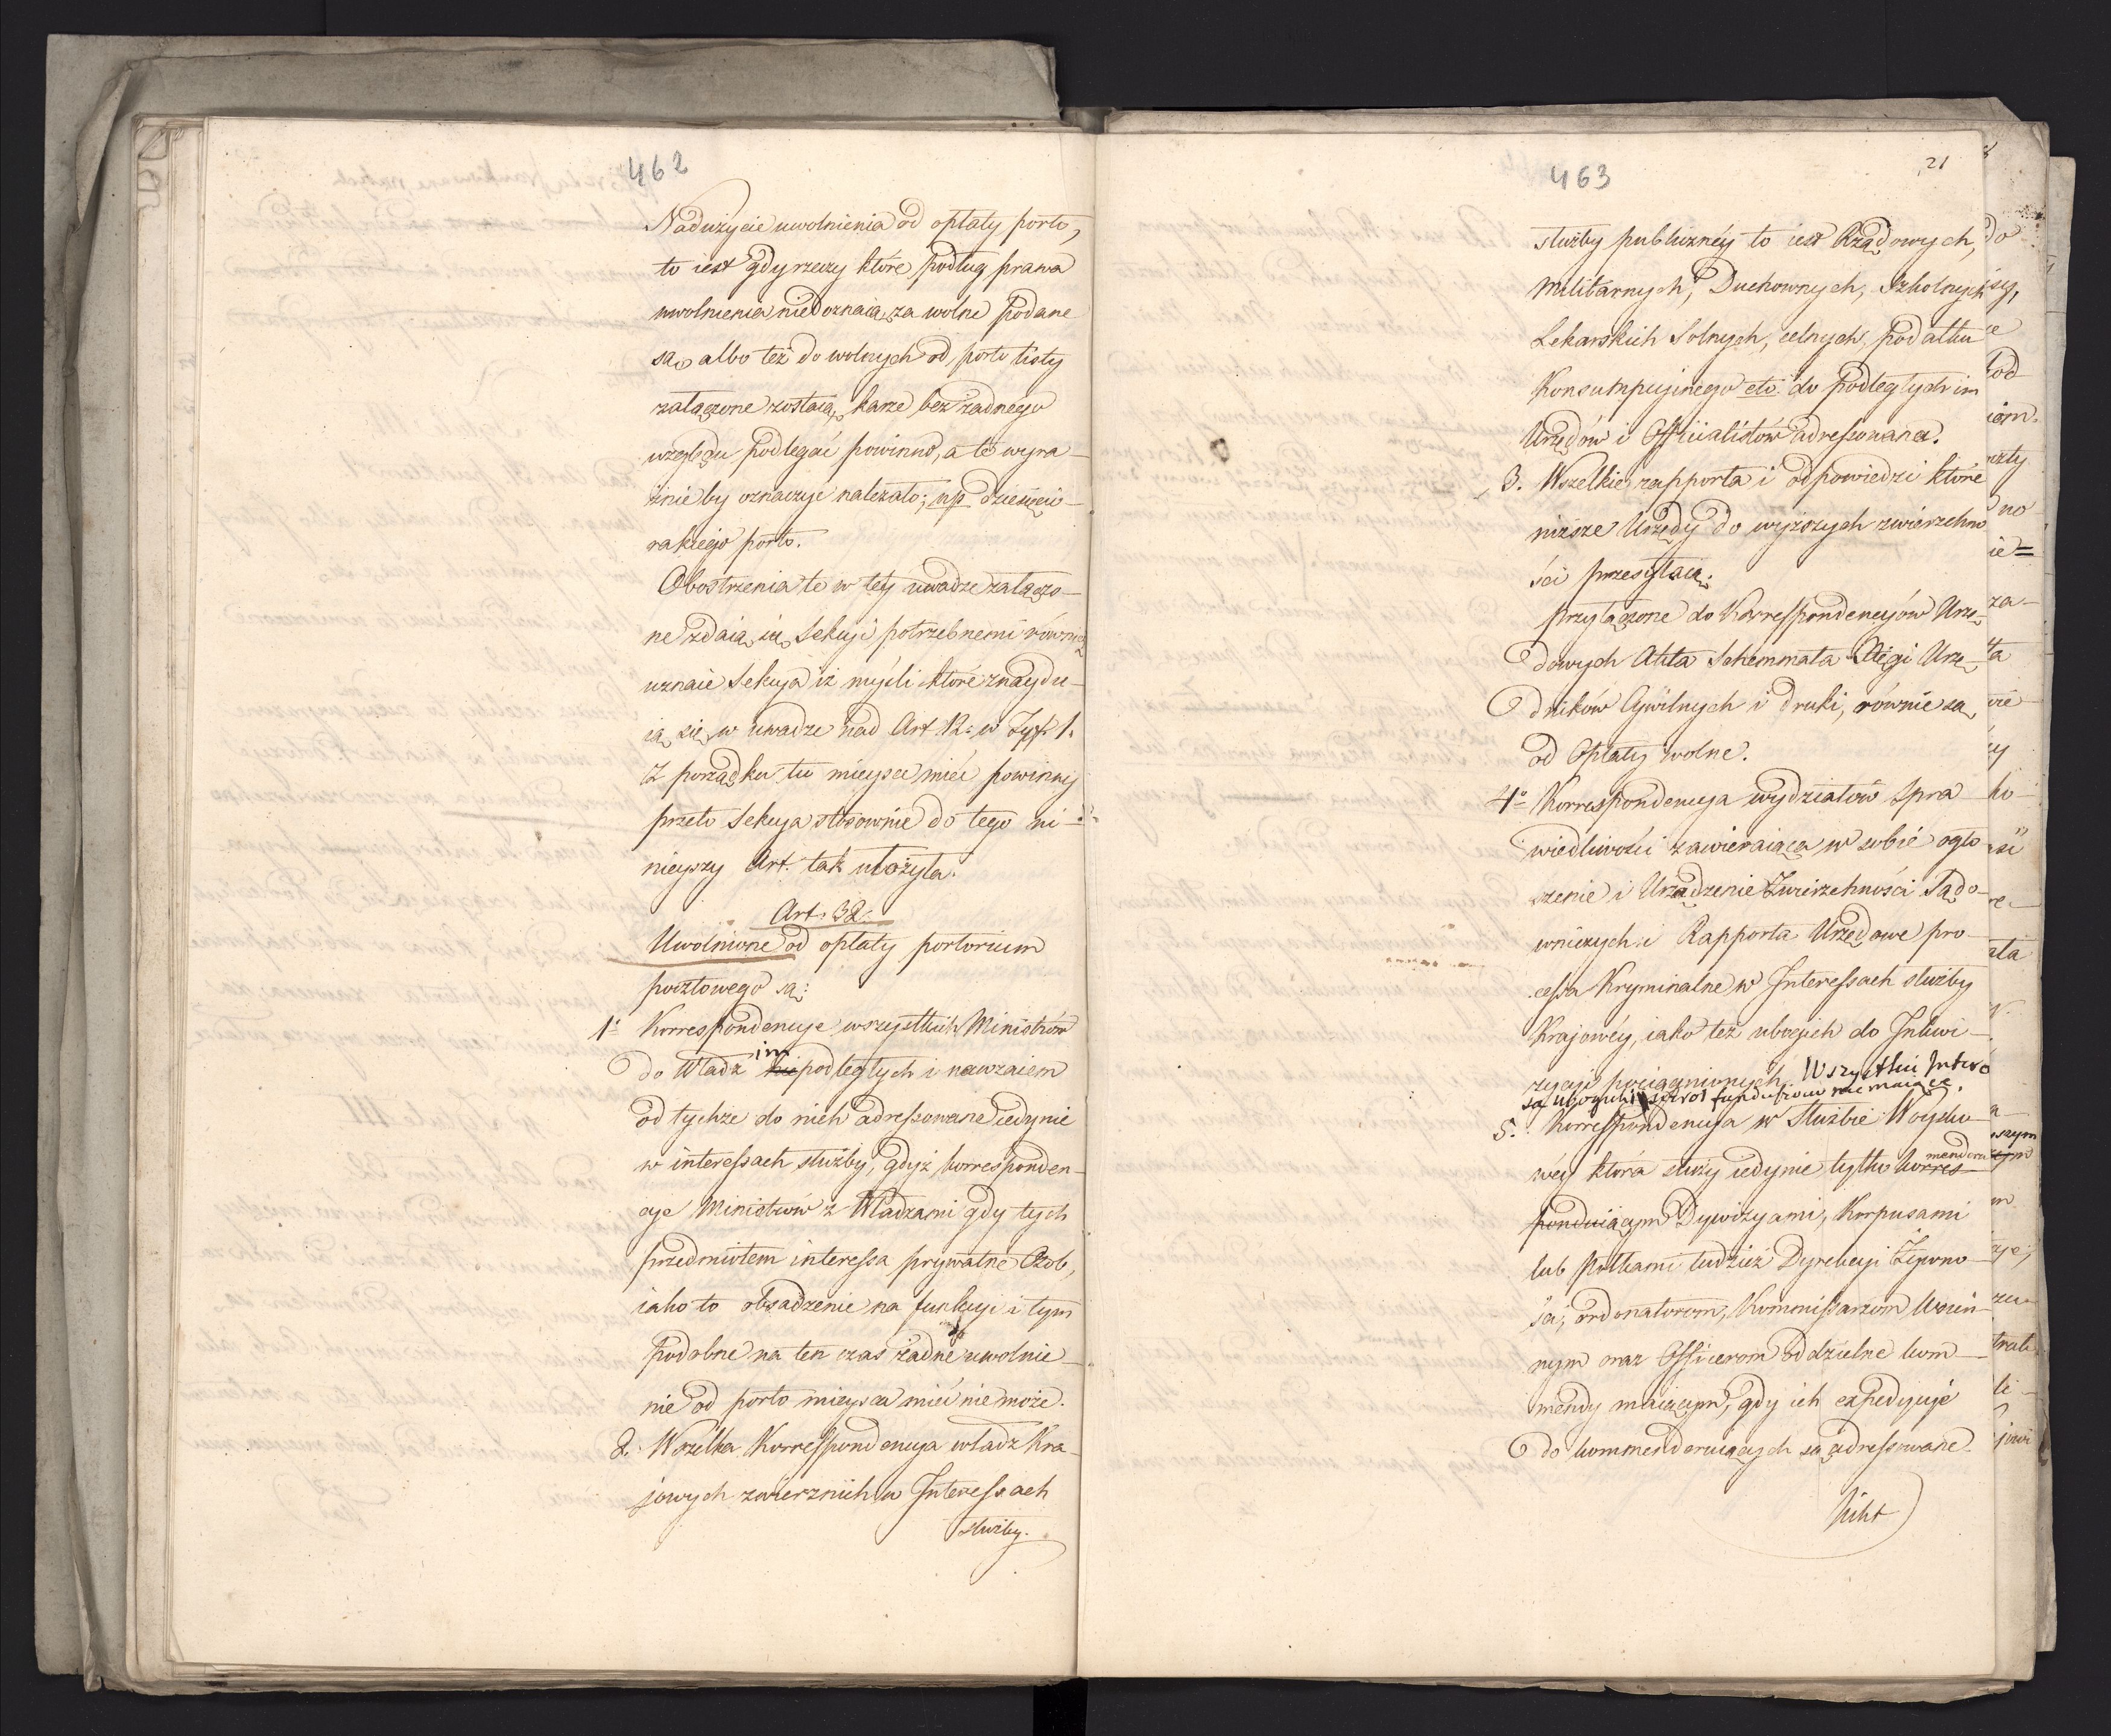 462
Nadużycie uwolnienia od opłaty porto,
to iest gdy rzeczy które podług prawa
uwolnienia niedoznaią za wolne podane
są, albo też do wolnych od porto listy
załączone zostaią, karze bez żadnego
względu podlegać powinno, a te wyra-
źnie by oznaczyć należało; np dziesięcio-
rakiego porto.
Obostrzenia te w tey uwadze załączo-
ne zdaią się Sekcyi potrzebnemi równie
uznaie Sekcya iż myśli które znaydu-
ią się w uwadze nad Art 12: w Tyt. 1.
z porządku tu mieysce mieć powinny
przeto Sekcya stosownie do tego ni-
nieyszy Art. tak ułożyła.
Art: 32:
Uwolnione od opłaty portorium
pocztowego są:
1º Korrespondencye wszystkich Ministrów
do Władz im podległych i nawzaiem
od tychże do nich adressowane iedynie
w interessach służby, gdyż korresponden-
cye Ministrów z Władzami gdy tych
przedmiotem interessa prywatne Osob,
iako to obsadzenie na funkcyi i tym
podobne na ten czas żadne uwolnie-
nie od porto mieysca mieć nie może.
2. Wszelka Korrespondencya władz Kra-
jowych zwierznich w Interessach
służby.
463
21
służby publiczney to iest Rządowych,
Militarnych, Duchownych, Szkolnych
Lekarskich Solnych, celnych, podatku
Konsumpcyinego etc do podległych im
Urzędów i Officialistów adressowana.
3. Wszelkie rapporta i odpowiedzi które
niższe Urzędy do wyższych zwierzchno
ści przesyłaią.
przyłączone do Korrespondencyów Urzę-
dowych Akta Schemmata Xięgi Urzę-
dników Cywilnych i druki, równie są
od Opłaty wolne.
4º Korrespondencya wydziałów Spra
wiedliwości zawieraiąca w sobie ogło
szenie i Urządzenie Zwierzchności Sądo-
wniczych i Rapporta Urzędowe pro-
cessa Kryminalne w Interessach służby
Krajowéy, iako też ubogich do Inkwi-
zycyi pociągnionych. Wszystkie Intero
są ubogich funduszów nie maiące.
5. Korrespondencya w Służbie Woysko
wéy która służy iedynie tylko korres- menderu
ponduiącym Dywizyami, Korpusami
lub Półkami tudzież Dyrekcyi Żywno
ści, ordonatorom, Kommissarzom Woien-
nym oraz Officerom oddzielne kom-
mendy maiącym, gdy ich expedycye
do kommenderuiących są adressowane.